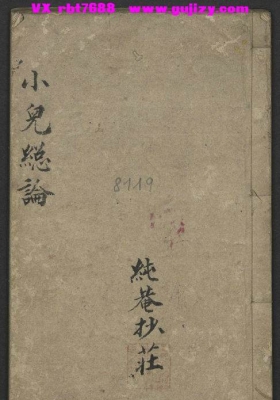 VX-rbt7688   www.gujizy.com
小兒總論
8119
純菴抄莊